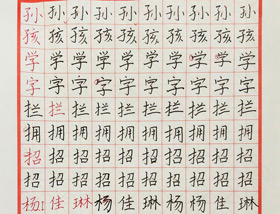 孙孙孙孙孙孙孙孙孙孙
孩孩孩孩孩孩孩孩孩孩
学学学学学学学学学学
字字字字字字字字字字
拦拦拦拦拦拦拦拦拦拦
拥拥拥拥拥拥拥拥拥拥
招招招招招招招招招招
招招招招招招招招招招
杨佳琳杨佳琳杨佳琳